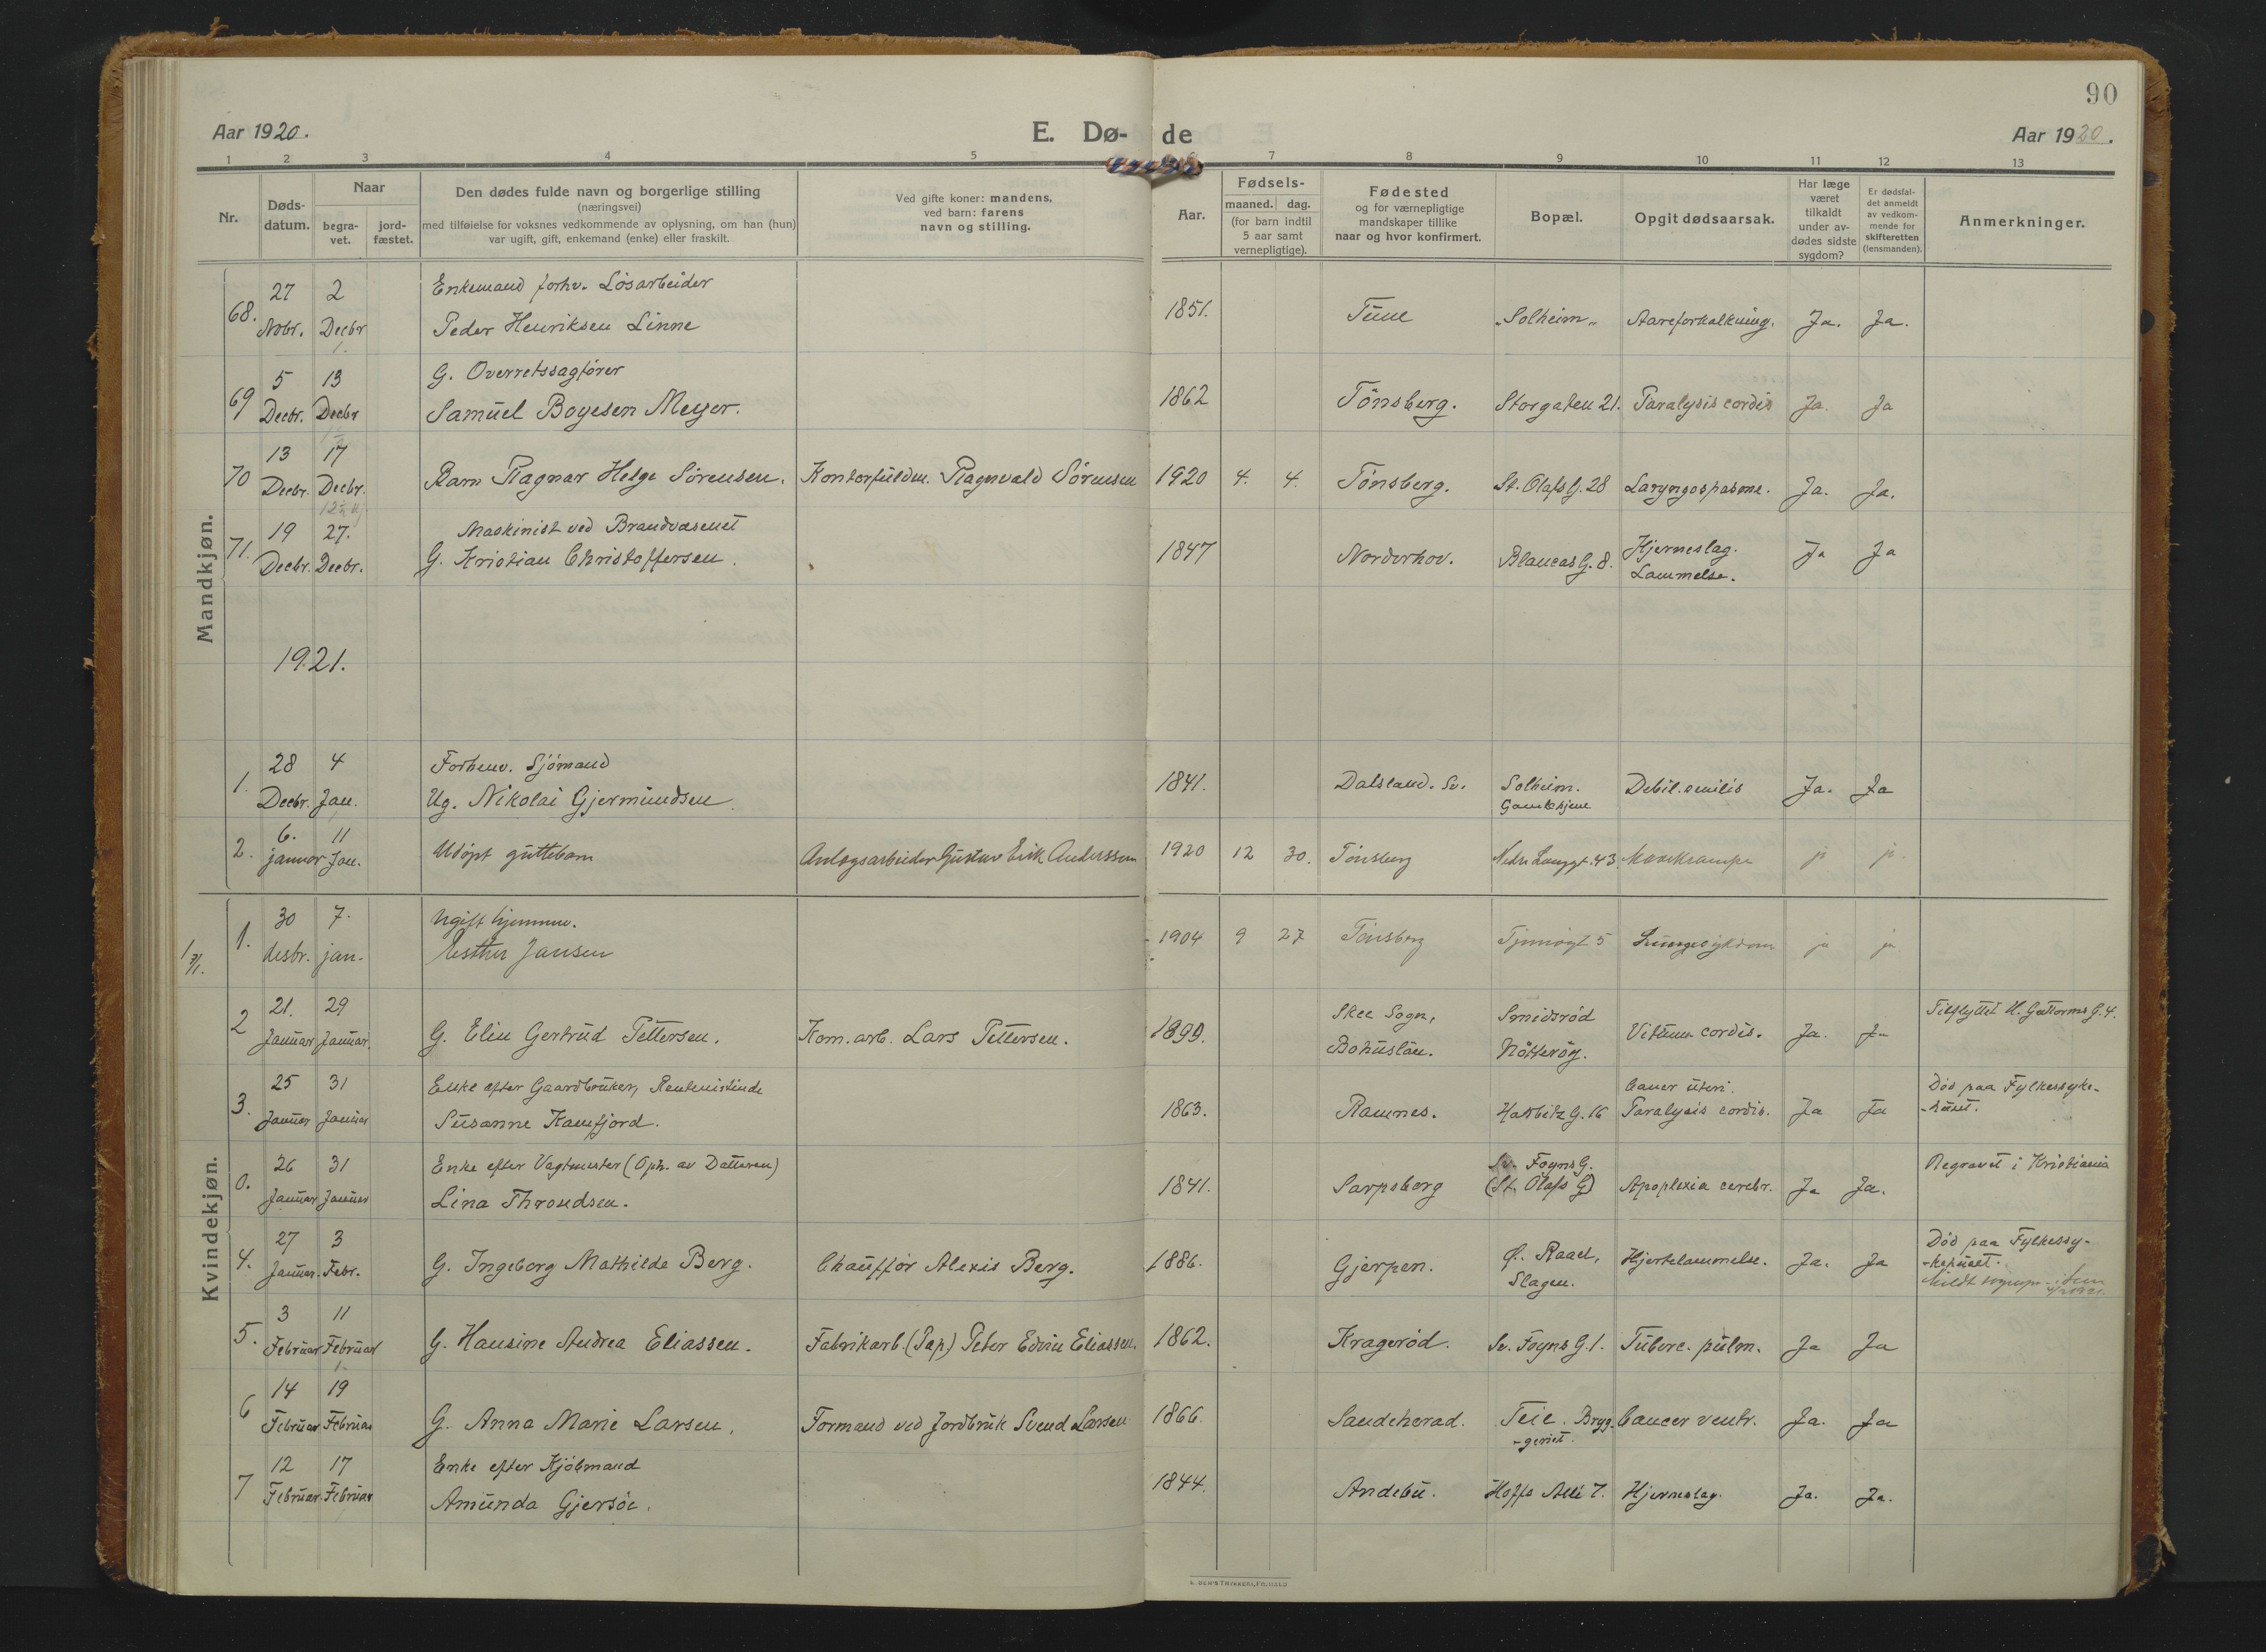 90
Aar 1920.
E. Dø- de
Aar 1920.
1 2 3 4 5 6 7 8 9 10 11 12 13
Nr.
Døds-
datum.
Naar
begra-
vet.
jord-
fæstet.
Den dødes fulde navn og borgerlige stilling
(næringsvei)
med tilføielse for voksnes vedkommende av oplysning, om han (hun)
var ugift, gift, enkemand (enke) eller fraskilt.
Ved gifte koner: mandens,
ved barn: farens
navn og stilling.
Aar.
Fødsels-
maaned. dag.
(for barn indtil
5 aar samt
vernepligtige).
Fødested
og for værnepligtige
mandskaper tillike
naar og hvor konfirmert.
Bopæl.
Opgit dødsaarsak.
Har læge
været
tilkaldt
under av-
dødes sidste
sygdom?
Er dødsfal-
det anmeldt
av vedkom-
mende for
skifteretten
(lensmanden).
Anmerkninger.
Mandkjøn.
27 2 Enkemand forhv. Løsarbeider
68. Novbr. Decbr Peder Henriksen Linne 1851. Tune "Solheim" Aareforkalkning. Ja. Ja.
5 13 G. Overretssagfører
69 Decbr. Decbr Samuel Boyesen Meyer. 1862 Tönsberg. Storgaten 21. Paralysis cordis Ja. Ja
13 17
70 Decbr. Decbr. Barn Ragnar Helge Sörensen. Kontorfuldm. Ragnvald Sörensen 1920 4. 4. Tönsberg. St. Olafs G. 28 Laryngospasme. Ja. Ja.
19 27. Maskinist ved Brandvæsenet
71. Decbr. Decbr. G. Kristian Christoffersen. 1847 Norderhov. Blancas G. 8. Hjerneslag. Ja Ja
Lammelse.
1921.
28 4 Forhenv. Sjömand
1. Decbr. Jan. Ug. Nikolai Gjermundsen. 1841. Dalsland. Sv. Solheim. Debil. senilis Ja. Ja
Gamlehjem
6. 11
2. januar Jan. Udöpt guttebarn Anlægsarbeider Gustav Erik Anderssen 1920 12 30. Tönsberg Nedre Langgt. 43. ja ja.
Kvindekjøn.
30 7. Ugift hjemmev.
1. desbr. jan. Esther Jansen 1904 9 27 Tönsberg Tjømøgt 5 Lungesykdom ja ja
21. 29
2 Januar Januar. G. Elin Gertrud Pettersen. Kom. arb. Lars Pettersen. 1899. Skee Sogn, Bohuslän. Smidsröd Nötteröy. Vitium cordis. Ja. Ja Tilflyttet H. Guttorms G. 4.
25 31 Enke efter Gaardbruker, Rentenistinde
3. Januar Januar Susanne Kamfjord. 1863. Ramnes. Halfdan G. 16 Cancer uteri. Paralysis cordis. Ja Ja Död paa Fylkessyke-
-huset.
26 31 Enke efter Vagtmester (Oph. av Datteren)
0. Januar Januar Lina Throndsen. 1841. Sarpsborg Sv. Foyns G. (St. Olafs G) Apoplexia cerebr. Ja Ja. Begravet i Kristiania
27 3
4. Januar. Febr. G. Ingeborg Mathilde Berg. Chaufför Alexis Berg. 1886. Gjerpen. Ø. Raael, Slagen. Hjertelammelse. Ja. Ja Död paa Fylkessy-
-kehuset.
3 11
5. Februar Februar G. Hansine Andrea Eliassen. Fabrikarb. (Pap.) Peter Edvin Eliassen. 1862. Krageröd. Sv. Foyns G. 1. Tuberc. pulm. Ja Ja
14 19
6 Februar Februar G. Anna Marie Larsen. Formand ved Jordbruk Svend Larsen 1866. Sandeherad. Teie. Bryg-
-geriet. Cancer ventr. Ja. Ja
12 17 Enke efter Kjöbmand
7 Februar Februar Amunda Gjersöe. 1844. Andebu. Hoffs Allé 7. Hjerneslag. Ja. Ja.